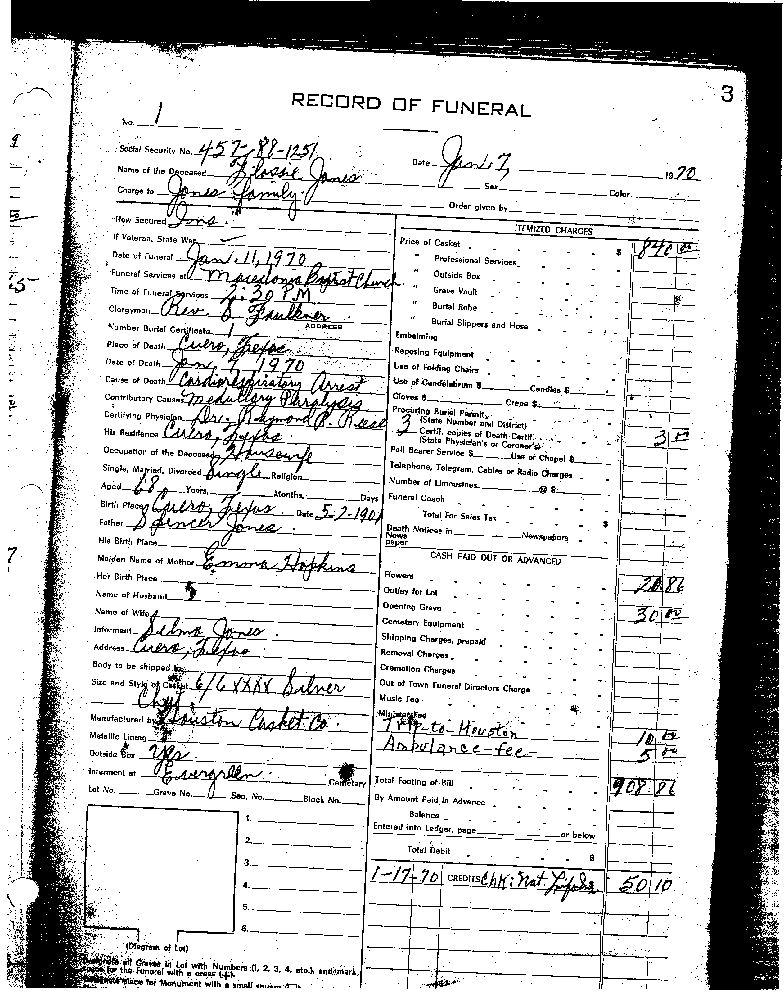 3
RECORD OF FUNERAL
No. 1
Social Security No. 457-88-1251
Date Jan. 7, 1970
Name of the Deceased Flossie Jones
Sex Color
Charge to Jones family.
Order given by
How Secured Ins.
If Veteran, State War
Date of Funeral Jan. 11, 1970
Funeral Services at Macedonia Baptist Church
Time of Funeral Services 2:30 P.M.
Clergyman Rev. Faulkner
ADDRESS
Number Burial Certificate 1
Place of Death Cuero, Texas
Date of Death Jan. 7, 1970
Cause of Death Cardiorespiratory Arrest
Contributory Causes Medullary Paralysis
Certifying Physician Dr. Raymond B. Reese
His Residence Cuero, Texas
Occupation of the Deceased Housewife
Single, Married, Divorced Single Religion
Aged 68 Years, Months, Days
Birth Place Cuero, Texas Date 5-7-1901
Father Spencer Jones
His Birth Place
Maiden Name of Mother Emma Hopkins
Her Birth Place
Name of Husband
Name of Wife
Informant Selma Jones
Address Cuero, Texas
Body to be shipped to
Size and Style of Casket 6/6 XXXX Silver
Manufactured by Houston Casket Co.
Metallic Lining
Outside Box Yes
Interment at Evergreen Cemetery
Lot No. Grave No. Sec. No. Block No.
1.
2.
3.
4.
5.
6.
(Diagram of Lot)
of Graves in Lot with Numbers (1, 2, 3, 4, etc.), and mark
for the Funeral with a cross (+).
place for Monument with a small square
ITEMIZED CHARGES
Price of Casket $ 840 00
" Professional Services
" Outside Box
" Grave Vault
" Burial Robe
" Burial Slippers and Hose
Embalming
Reposing Equipment
Use of Folding Chairs
Use of Candelabrum $ Candles $
Gloves $ Crepe $
Procuring Burial Permit
(State Number and District)
3 Certif. copies of Death Certif. 3 00
(State Physician's or Coroner's)
Pall Bearer Service $ Use of Chapel $
Telephone, Telegram, Cables or Radio Charges
Number of Limousines @ $
Funeral Coach
Total For Sales Tax $
Death Notices in Newspapers
News
paper
CASH PAID OUT OR ADVANCED
Flowers 20 86
Outlay for Lot
Opening Grave 30 00
Cemetery Equipment
Shipping Charges, prepaid
Removal Charges
Cremation Charges
Out of Town Funeral Directors Charge
Music Fee
Trip to Houston 10 00
Ambulance fee 5 00
Total Footing of Bill 908 86
By Amount Paid in Advance
Balance
Entered into Ledger, page or below
Total Debit $
1-17-70 CREDITS Chk: Nat. 50 10